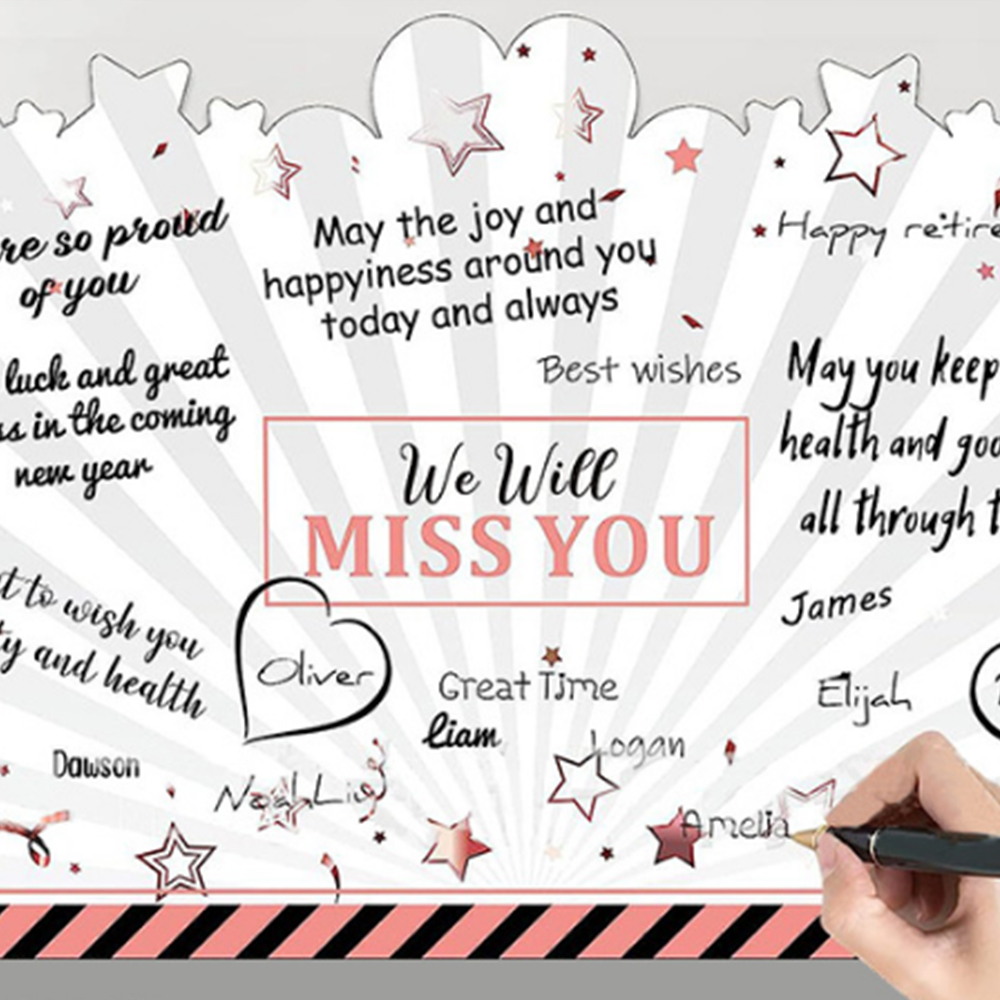 re so proud
of you
May the joy and
happyiness around you
today and always
Happy retire
luck and great
ss in the coming
new year
Best wishes
May you keep
health and goo
all through t
We Will
MISS YOU
t to wish you
ty and health
James
Oliver
Great Time
Elijah
liam
Logan
Dawson
Noah Liu
Amelia